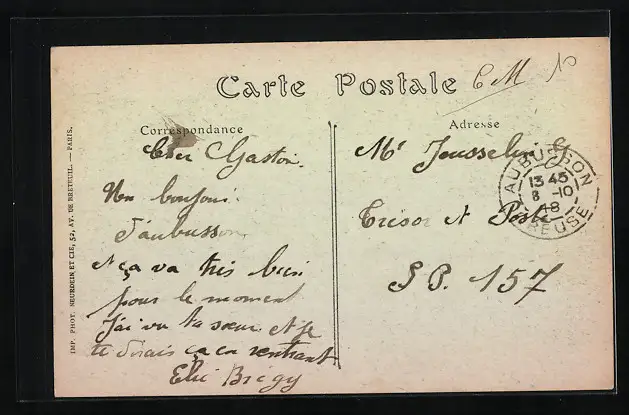 Carte Postale
C M
Correspondance
Adresse
Cher Gaston.
Un bonjour
d'aubusson
et ça va très bien
pour le moment
J'ai vu ta sœur et je
te dirais ça en rentrant
Elie Brégy
Mr Jousselin G
Trésor et Poste
S P. 157
AUBUSSON
13 45
8 -10
18
CREUSE
IMP. PHOT. NEURDEIN ET CIE, 52, AV. DE BRETEUIL. — PARIS.